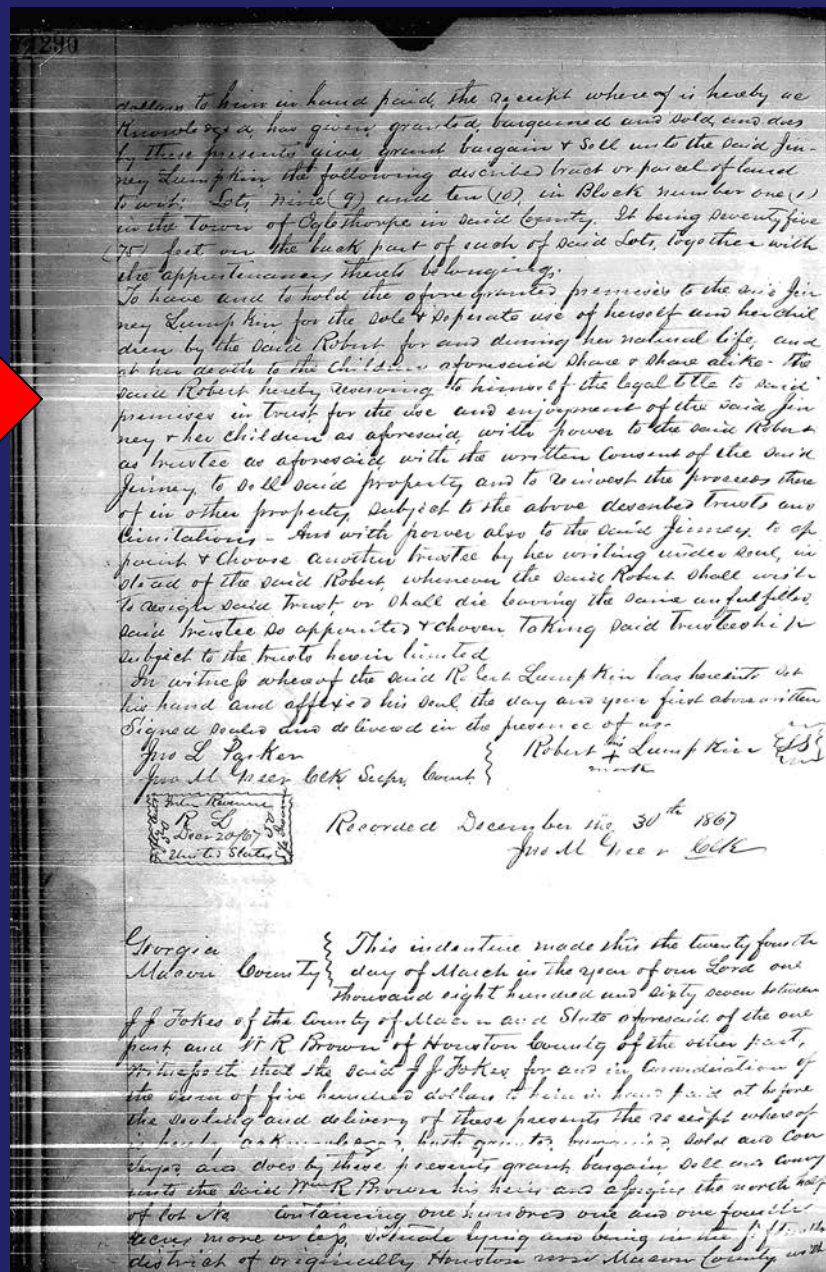 290
dollars to him in hand paid, the receipt whereof is hereby ac
knowledged, has given, granted, bargained and sold, and does
by these presents give grant bargain & sell unto the said Jin-
ney Lumpkin the following described tract or parcel of land
to wit: Lots nine (9) and ten (10), in Block number one (1)
in the Town of Oglethorpe in said County. It being seventy five
(75) feet on the back part of each of said Lots, together with
the appurtenances thereto belonging.
To have and to hold the aforegranted premises to the said Jin
ney Lumpkin for the sole & seperate use of herself and her chil
dren by the said Robert for and during her natural life, and
at her death to the children aforesaid share & share alike - the
said Robert hereby reserving to himself the legal title to said
premises in trust for the use and enjoyment of the said Jin
ney & her children as aforesaid, with power to the said Robert
as trustee as aforesaid with the written consent of the said
Jinney to sell said property and to reinvest the proceeds there
of in other property, subject to the above described trusts and
limitations - And with power also to the said Jinney, to ap
point & choose another trustee by her writing under seal, in
stead of the said Robert, whenever the said Robert shall wish
to resign said trust or shall die leaving the same unfulfilled
said trustee so appointed & chosen taking said trusteeship
subject to the trusts herein limited
In witness whereof the said Robert Lumpkin has hereunto set
his hand and affixed his seal the day and year first above written
Signed sealed and delivered in the presence of us.
Jno L Parker
Jno M Greer Clk Supr. Court
Robert his + mark Lumpkin {LS}
Inter Revenue
R L
Decr 20/67
United States
50
Recorded December the 30th 1867
Jno M Greer Clk
Georgia
Macon County
This indenture made this the twenty fourth
day of March in the year of our Lord one
thousand eight hundred and sixty seven between
J J Fokes of the County of Macon and State aforesaid of the one
part and W R Brown of Houston County of the other part,
Witnesseth that the said J J Fokes for and in Consideration of
the sum of five hundred dollars to him in hand paid at before
the sealing and delivery of these presents the receipt whereof
is hereby acknowledged, hath granted, bargained, sold and Con
veyed and does by these presents grant bargain sell and convey
unto the said Wm R Brown his heirs and assigns the north half
of lot No containing one hundred one and one fourth
acres more or less, situate lying and being in the
district of originally Houston now Macon County with